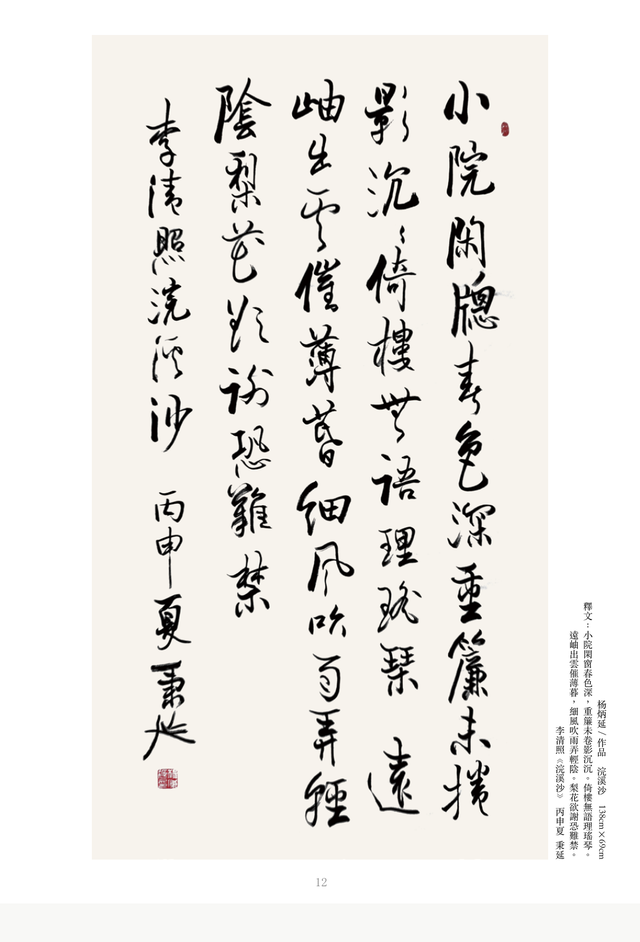 小院閑牕春色深重簾未捲
影沉〻倚樓無語理瑤琴遠
岫出雲催薄暮細風吹雨弄輕
陰梨花欲謝恐難禁
李清照浣溪沙 丙申夏秉延
杨炳延/作品 浣溪沙 138cm×69cm
釋文：小院閑窗春色深，重簾未卷影沉沉。倚樓無語理瑤琴。
遠岫出雲催薄暮，細風吹雨弄輕陰。梨花欲謝恐難禁。
李清照《浣溪沙》 丙申夏 秉延
12